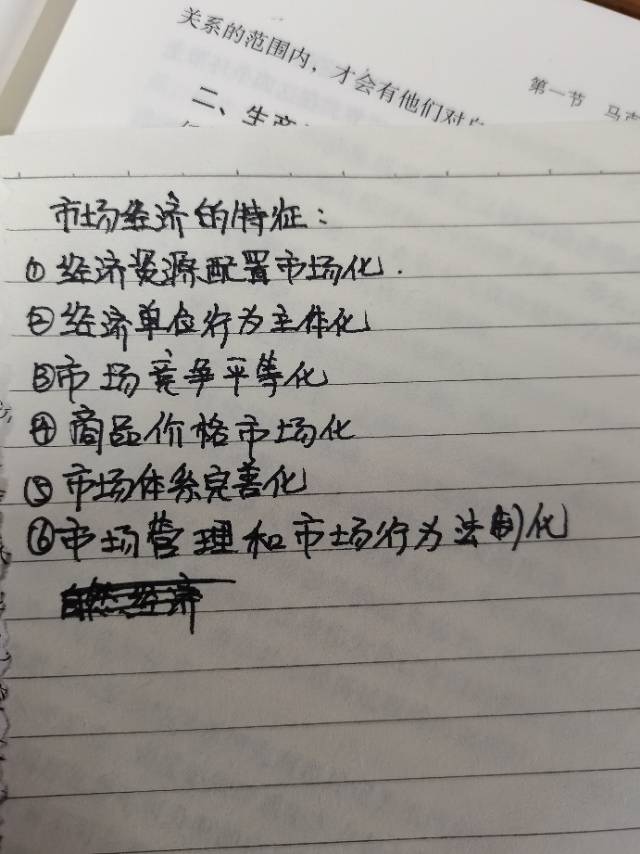 关系的范围内，才会有他们对
第一节 马克
二、生产
市场经济的特征：
①经济资源配置市场化.
②经济单位行为主体化
③市场竞争平等化
④商品价格市场化
⑤市场体系完善化
⑥市场管理和市场行为法制化
自然经济